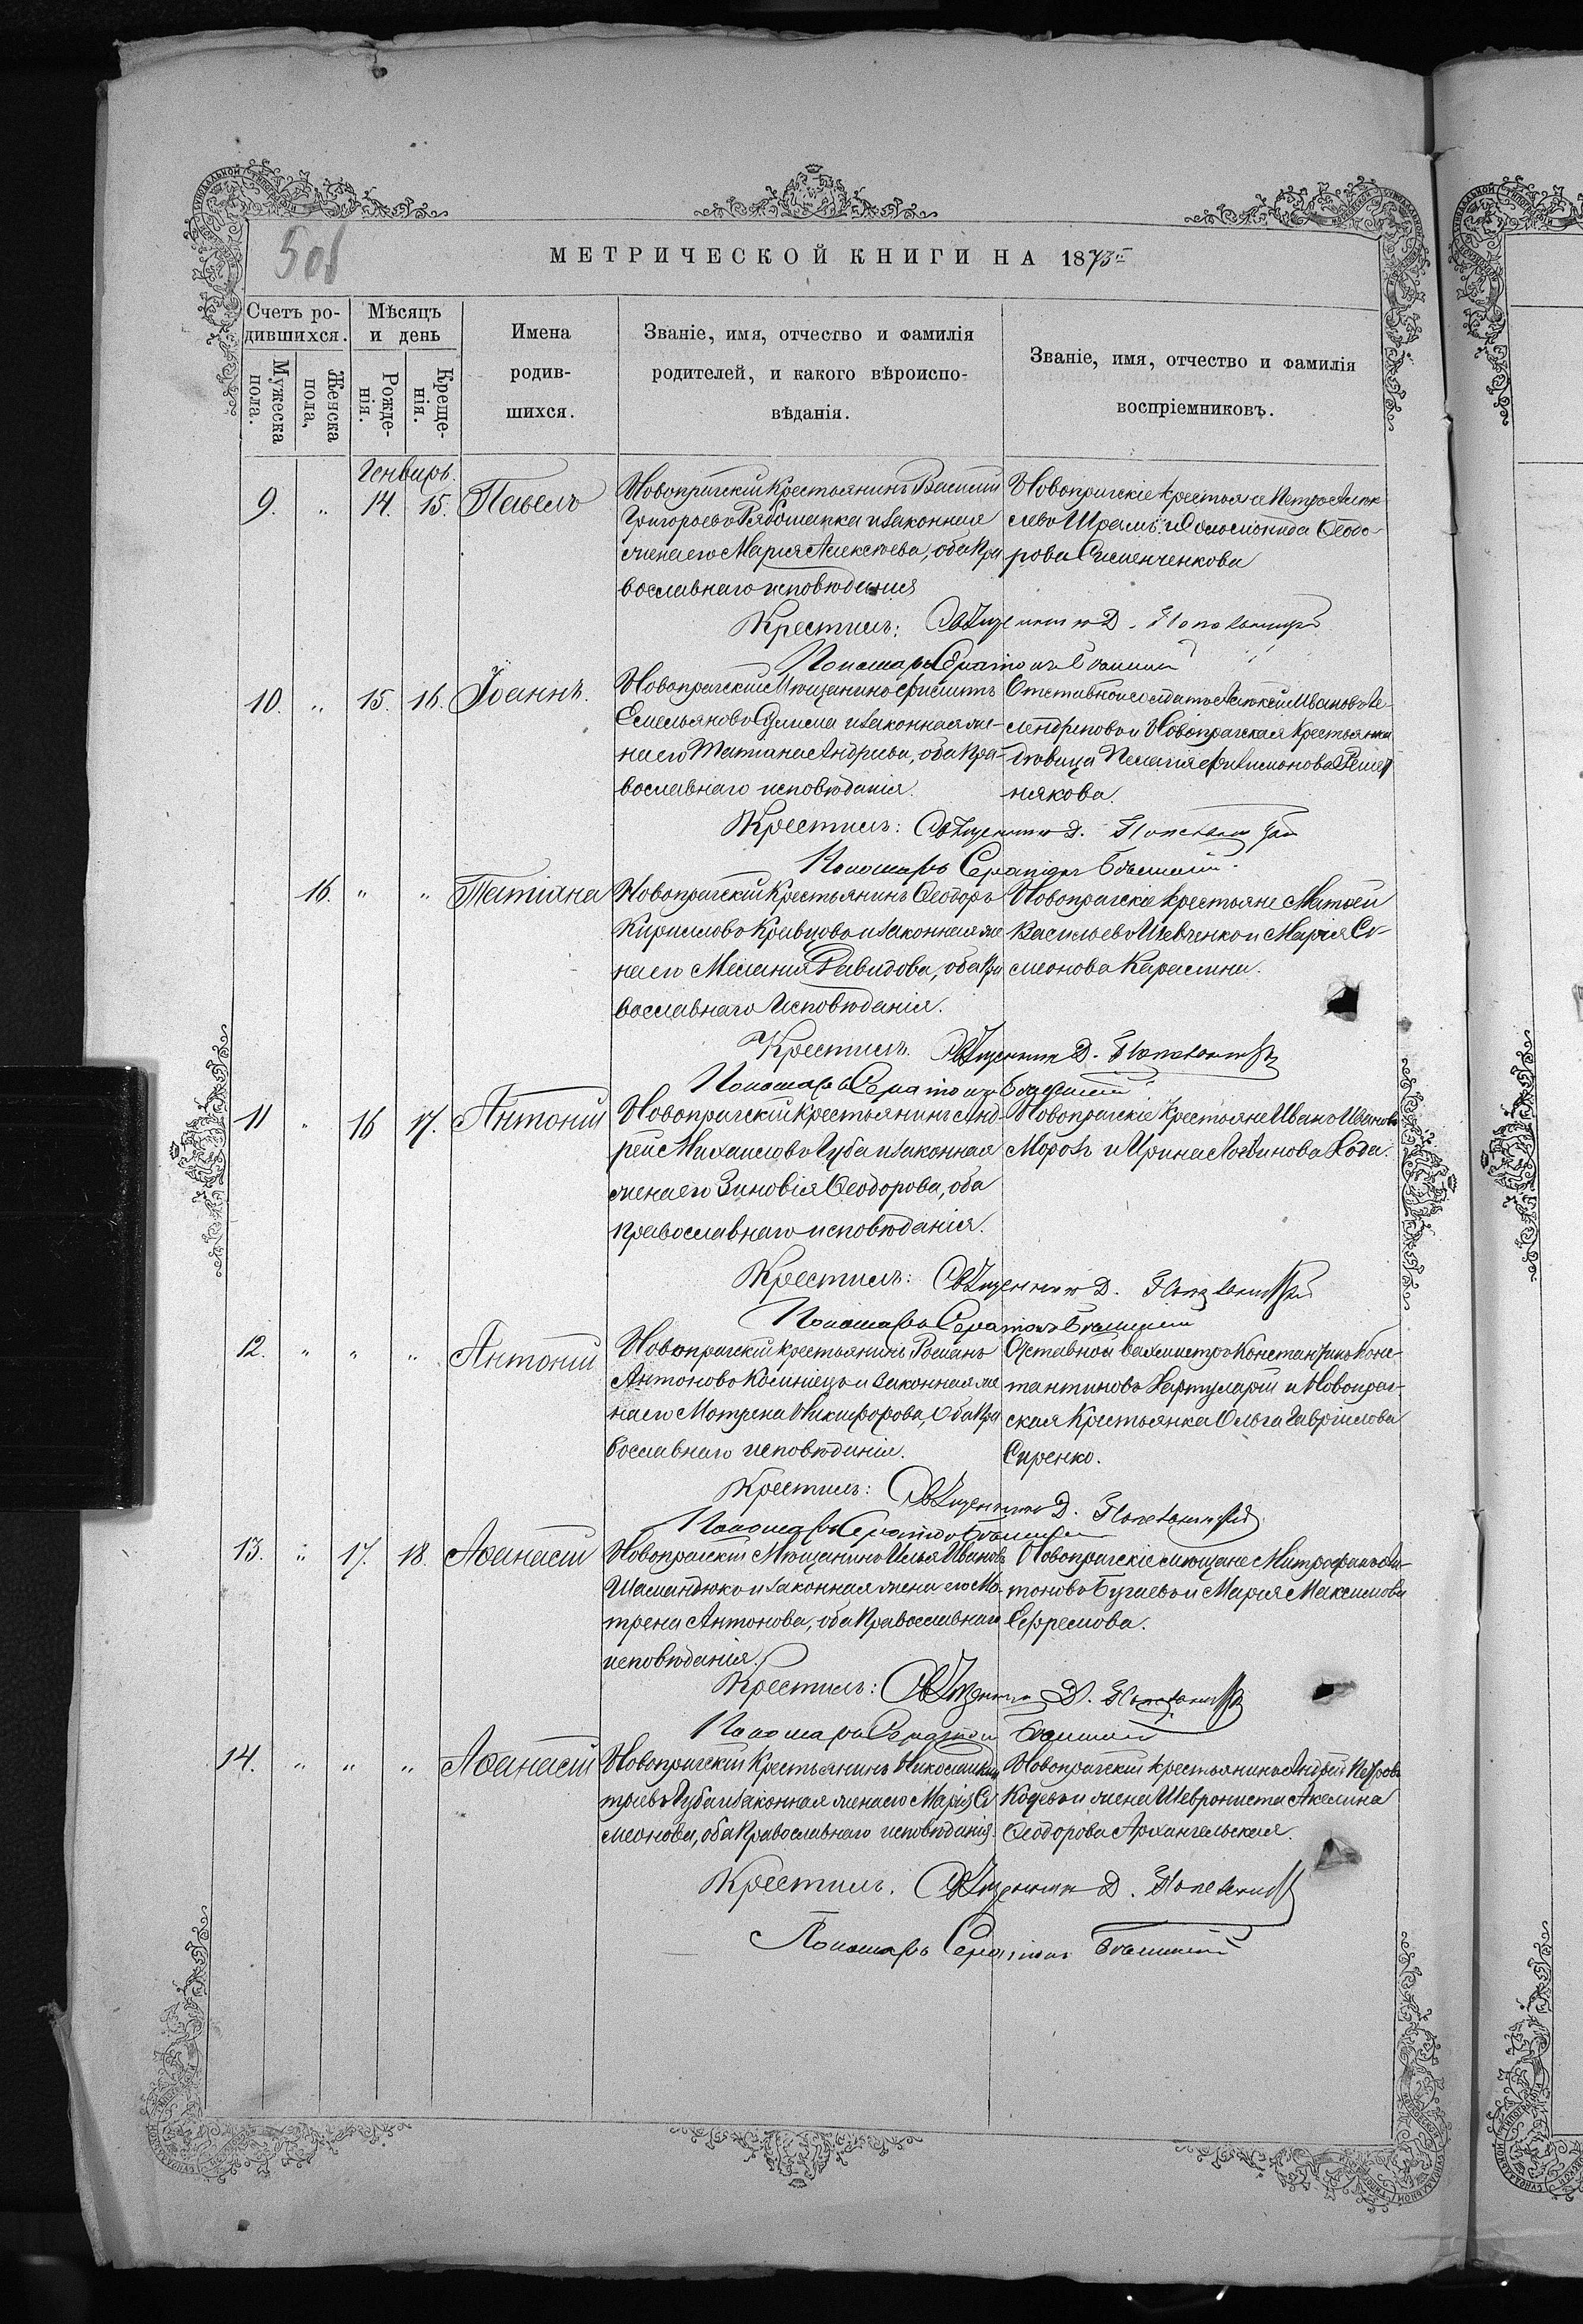 50б
МЕТРИЧЕСКОЙ КНИГИ НА 1873й
Счетъ ро-
дившихся.
Мужеска
пола.
Женска
пола,
Мѣсяцъ
и день
Рожде-
нія.
Креще-
нія.
Имена
родив-
шихся.
Званіе, имя, отчество и фамилія
родителей, и какого вѣроиспо-
вѣданія.
Званіе, имя, отчество и фамилія
воспріемниковъ.
Генварь.
9. " 14. 15. Павелъ
Новопрагскій Крестьянинъ Василій
Григорьевъ Рябошапка и законная
жена его Марія Алексѣева, оба Пра
вославнаго исповѣданія
Новопрагскіе крестьяне Петръ Алек
сѣевъ Шрамъ и Ѳеодо-
рова Сименченкова
Крестилъ: Священникъ Д.
Пономарь
10. " 15. 16. Іоаннъ.
Новопрагскій Мѣщанинъ Филиппъ
Емельяновъ и законная же-
на его Татіана Андреева, оба Пра-
вославнаго исповѣданія.
Отставной солдатъ Алексѣй Ивановъ
и Новопрагская Крестьянка
дѣвица Пелагія Филимонова Решет
някова.
Крестилъ: Священникъ Д.
Пономарь
16. " " Татіана
Новопрагскій Крестьянинъ Ѳеодоръ
Кирилловъ Кривцовъ и законная же
на его Меланія Давидова, оба Пра
вославнаго Исповѣданія.
Новопрагскіе крестьяне Матѳей
Васильевъ Шевченко и Марія Си-
меонова Карасина.
Крестилъ. Священникъ Д.
Пономарь
11 " 16 17. Антоній
Новопрагскій крестьянинъ Анд-
рей Михаиловъ Губа и законная
жена его Зиновія Ѳеодорова, оба
православнаго исповѣданія.
Новопрагскіе Крестьяне Иванъ Ивановъ
Морозъ и Ирина Логвинова Кода.
Крестилъ: Священникъ Д.
Пономарь
12. " " " Антоній
Новопрагскій крестьянинъ Романъ
Антоновъ и законная же
на его Мотрена Никифорова, Оба Пра
вославнаго исповѣданія.
Отставной вахмистръ Константинъ Конс-
тантиновъ и Новопраг-
ская Крестьянка Ольга Гавріилова
Сиренко.
Крестилъ: Священникъ Д.
Пономарь
13. " 17. 18. Аѳанасій
Новопрагскій Мѣщанинъ Илья Ивановъ
Шамандюкъ и законная жена его Мо-
трена Антонова, оба Православнаго
исповѣданія.
Новопрагскіе мѣщане Митрофанъ Ан-
тоновъ Бугаевъ и Марія Максимова
Ефремова.
Крестилъ: Священникъ Д.
Пономарь
14. " " " Аѳанасій
Новопрагскій Крестьянинъ Николай Дми
тріевъ Губа и законная жена его Марія Си
меонова, оба Православнаго исповѣданія.
Новопрагскій крестьянинъ Андрей Петровъ
Коцевъ и жена Шеврониста Акелина
Ѳеодорова Архангельская.
Крестилъ. Священникъ Д.
Пономарь